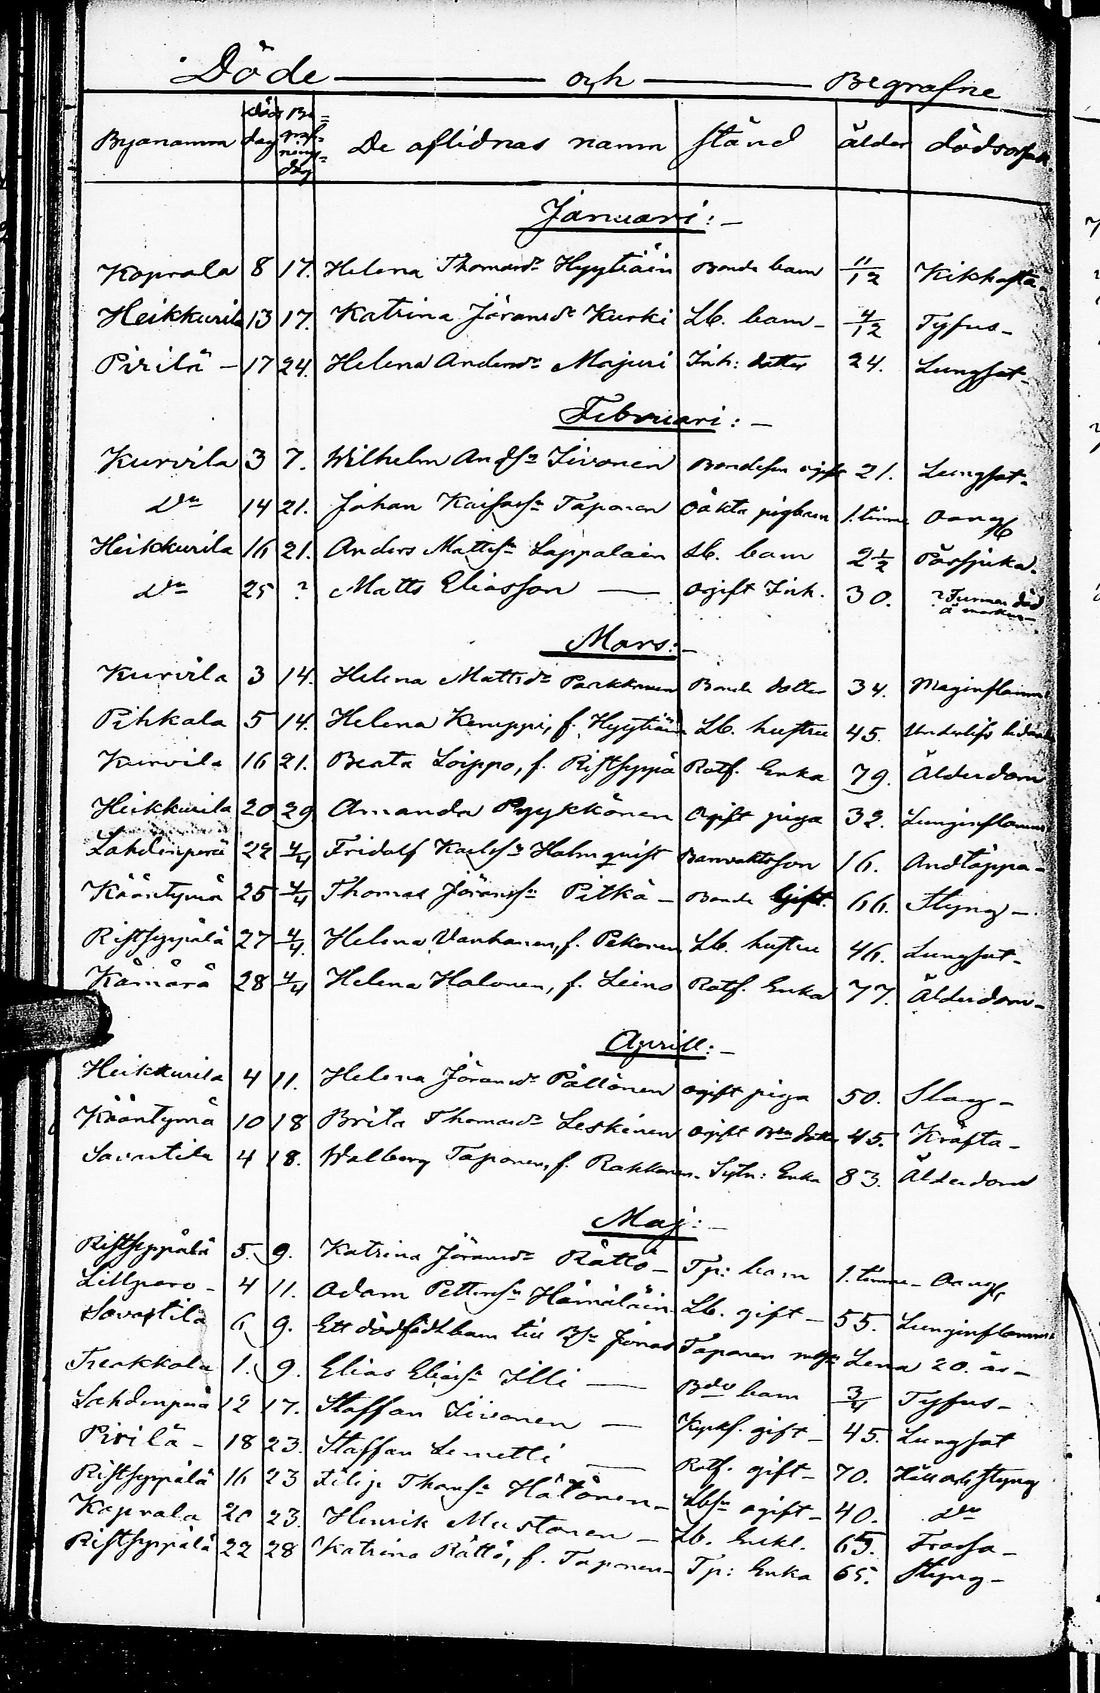 Döde och Begrafne
Byanamn Döds dag Begrafnings dag De aflidnas namn stånd ålder dödsorsak
Januari:
Kaprala 8 17. Helena Thomasdr Hyytiäin Bonde barn 11/12 Kikhosta
Heikkurila 13 17. Katrina Jöransdr Kurki Lb. barn 4/12 Tyfus
Pirilä 17 24. Helena Andersdr Majuri Inh: dotter 24. Lungsot
Februari:
Kurvila 3 7. Wilhelm Andsn Iivonen Bondeson ogift 21. Lungsot
Do 14 21. Johan Taponen Oäkta pigbarn 1. timme
Heikkurila 16 21. Anders Mattssn Lappalain Lb. barn 2 1/2 Påssjuka
Do 25 ? Matts Eliasson Ogift Inh. 30. ? Funnen död å marken
Mars:
Kurvila 3 14. Helena Mattsdr Parkkonen Bonde dotter 34. Maginflamm
Pihkala 5 14. Helena Kemppi, f. Hyytiäin Lb. hustru 45. Underlifs lidande
Kurvila 16 21. Beata Loippo, f. Ristseppä Rotf. Enka 79. Ålderdom
Heikkurila 20 29 Amanda Pyykkönen Ogift piga 32. Lunginflamm
Lahdenperä 22 4/4 Fridolf Karlssn Holmquist Banvaktsson 16. Andtäppa
Kääntymä 25 4/4 Thomas Jöranssn Pitkä Bonde Gift. 66. Styng
Ristseppälä 27 4/4 Helena Vanhanen, f. Pekonen Lb. hustru 46. Lungsot
Kämärä 28 4/4 Helena Halonen, f. Leino Rotf. Enka 77. Ålderdom
Aprill:
Heikkurila 4 11. Helena Jöransdr Pällönen ogift piga 50. Slag
Kääntymä 10 18 Brita Thomasdr Leskinen ogift Bde dotter 45. Kräfta
Savastila 4 18. Walborg Taponen, f. Rakkonen Sytn: Enka 83. Ålderdom
Maj:
Ristseppälä 5. 9. Katrina Jöransdr Rättö Tp: barn 1. timme
Lillpero 4 11. Adam Petterssn Hämäläin Lb. gift 55. Lunginflamm
Savastila 6 9. Ett dödfödt barn till Bsn Jonas Taponen Lena 20. år
Terkkola 1. 9. Elias Eliassn Illi Bde barn 3/4 Tyfus
Lahdenperä 12 17. Staffan Iivonen Kyrkf. gift 45. Lungsot
Pirilä 18 23. Staffan Lemetti Rotf. gift 70. Håll och Styng
Ristseppälä 16 23 Filip Thomssn Hätönen Lbsn ogift 40. Do
Kaprala 20 23. Henrik Mustonen Lb. Enkl. 65. Frossa
Ristseppälä 22 28 Katrina Rättö, f. Taponen Tp: Enka 65. Styng